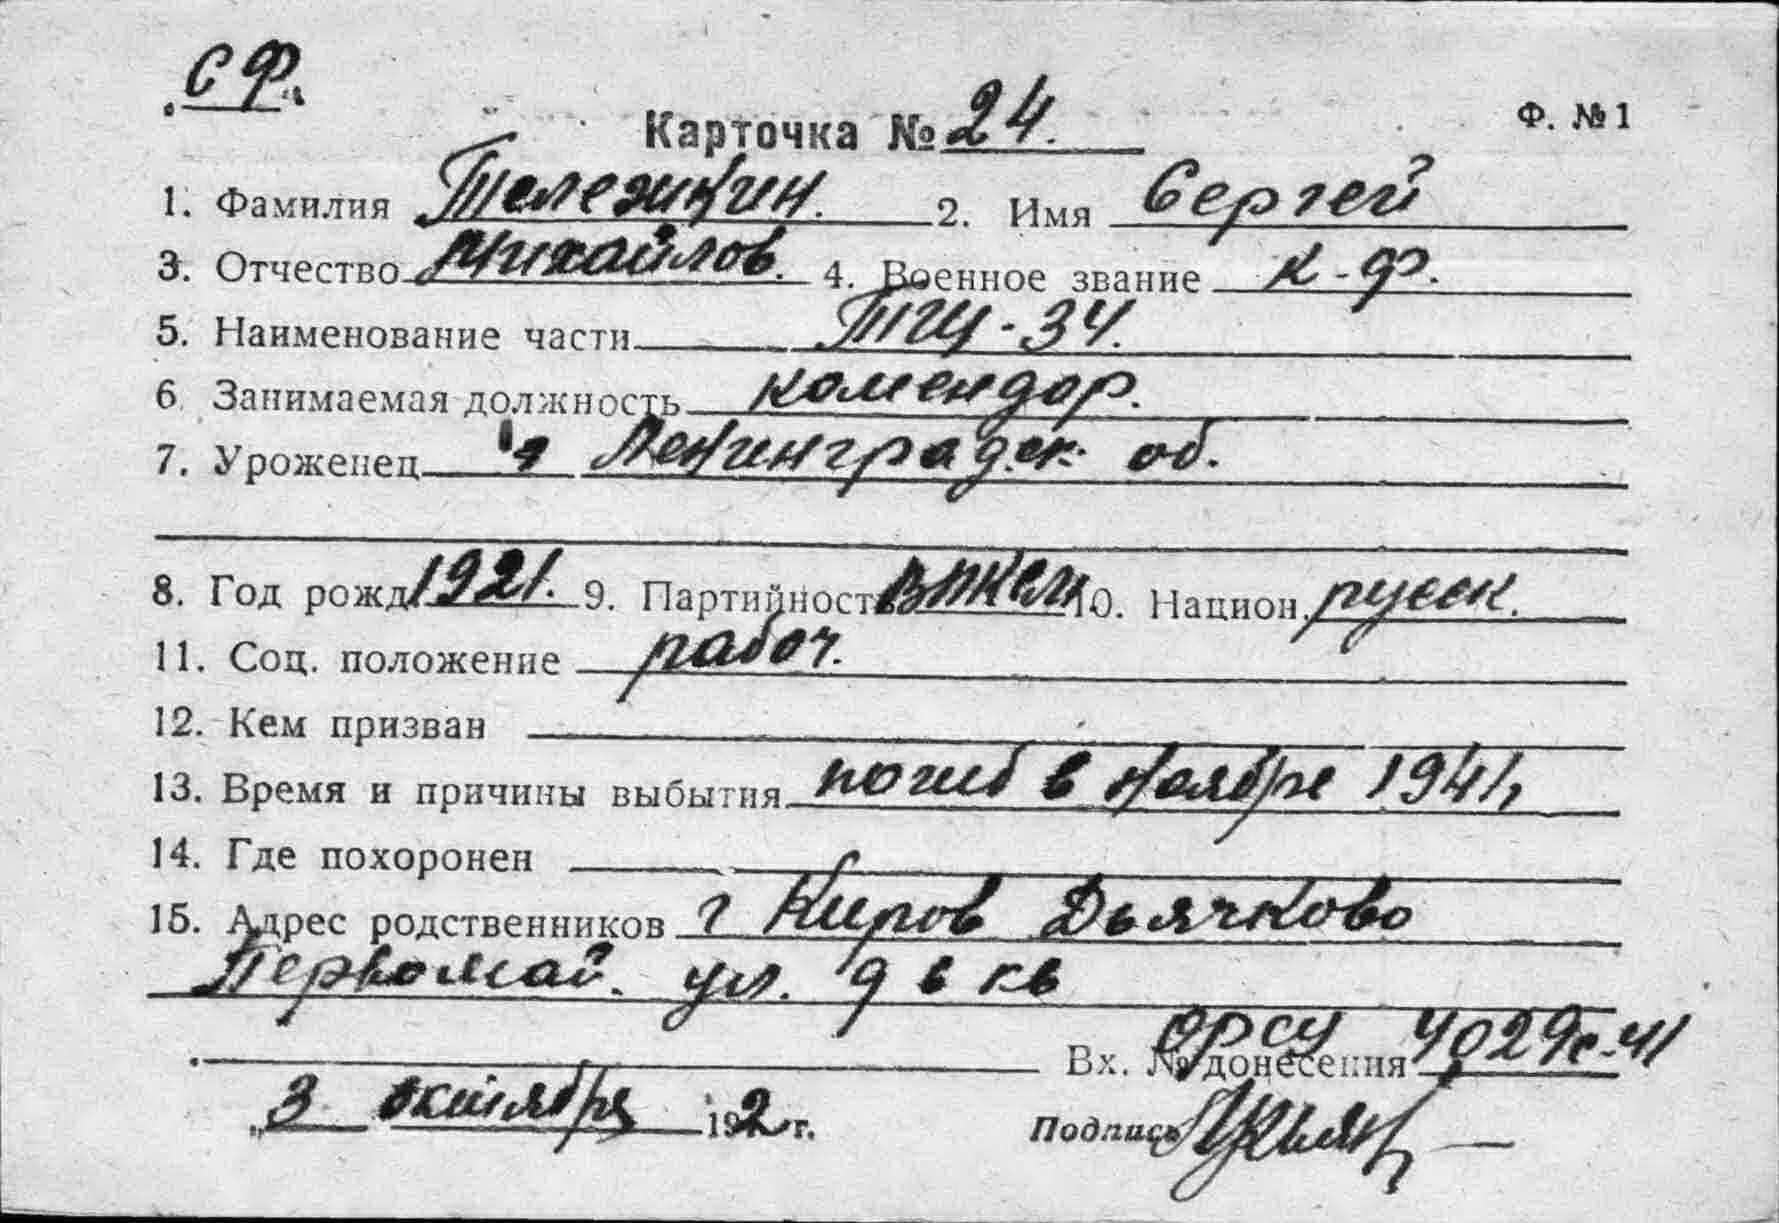 СФ.
Карточка № 24. Ф. №1
1. Фамилия Тележкин. 2. Имя Сергей
3. Отчество Михайлов. 4. Военное звание к-ф.
5. Наименование части ТЩ-34.
6. Занимаемая должность комендор.
7. Уроженец Ленинградск. об.
8. Год рожд. 1921. 9. Партийность ВЛКСМ 10. Национ. русск.
11. Соц. положение рабоч.
12. Кем призван
13. Время и причины выбытия погиб в ноябре 1941,
14. Где похоронен
15. Адрес родственников г Киров Дьячково
Первомай. ул. 9 в кв
Вх. № донесения ОРСУ 4029с-41
„3 октября 1942 г. Подпись